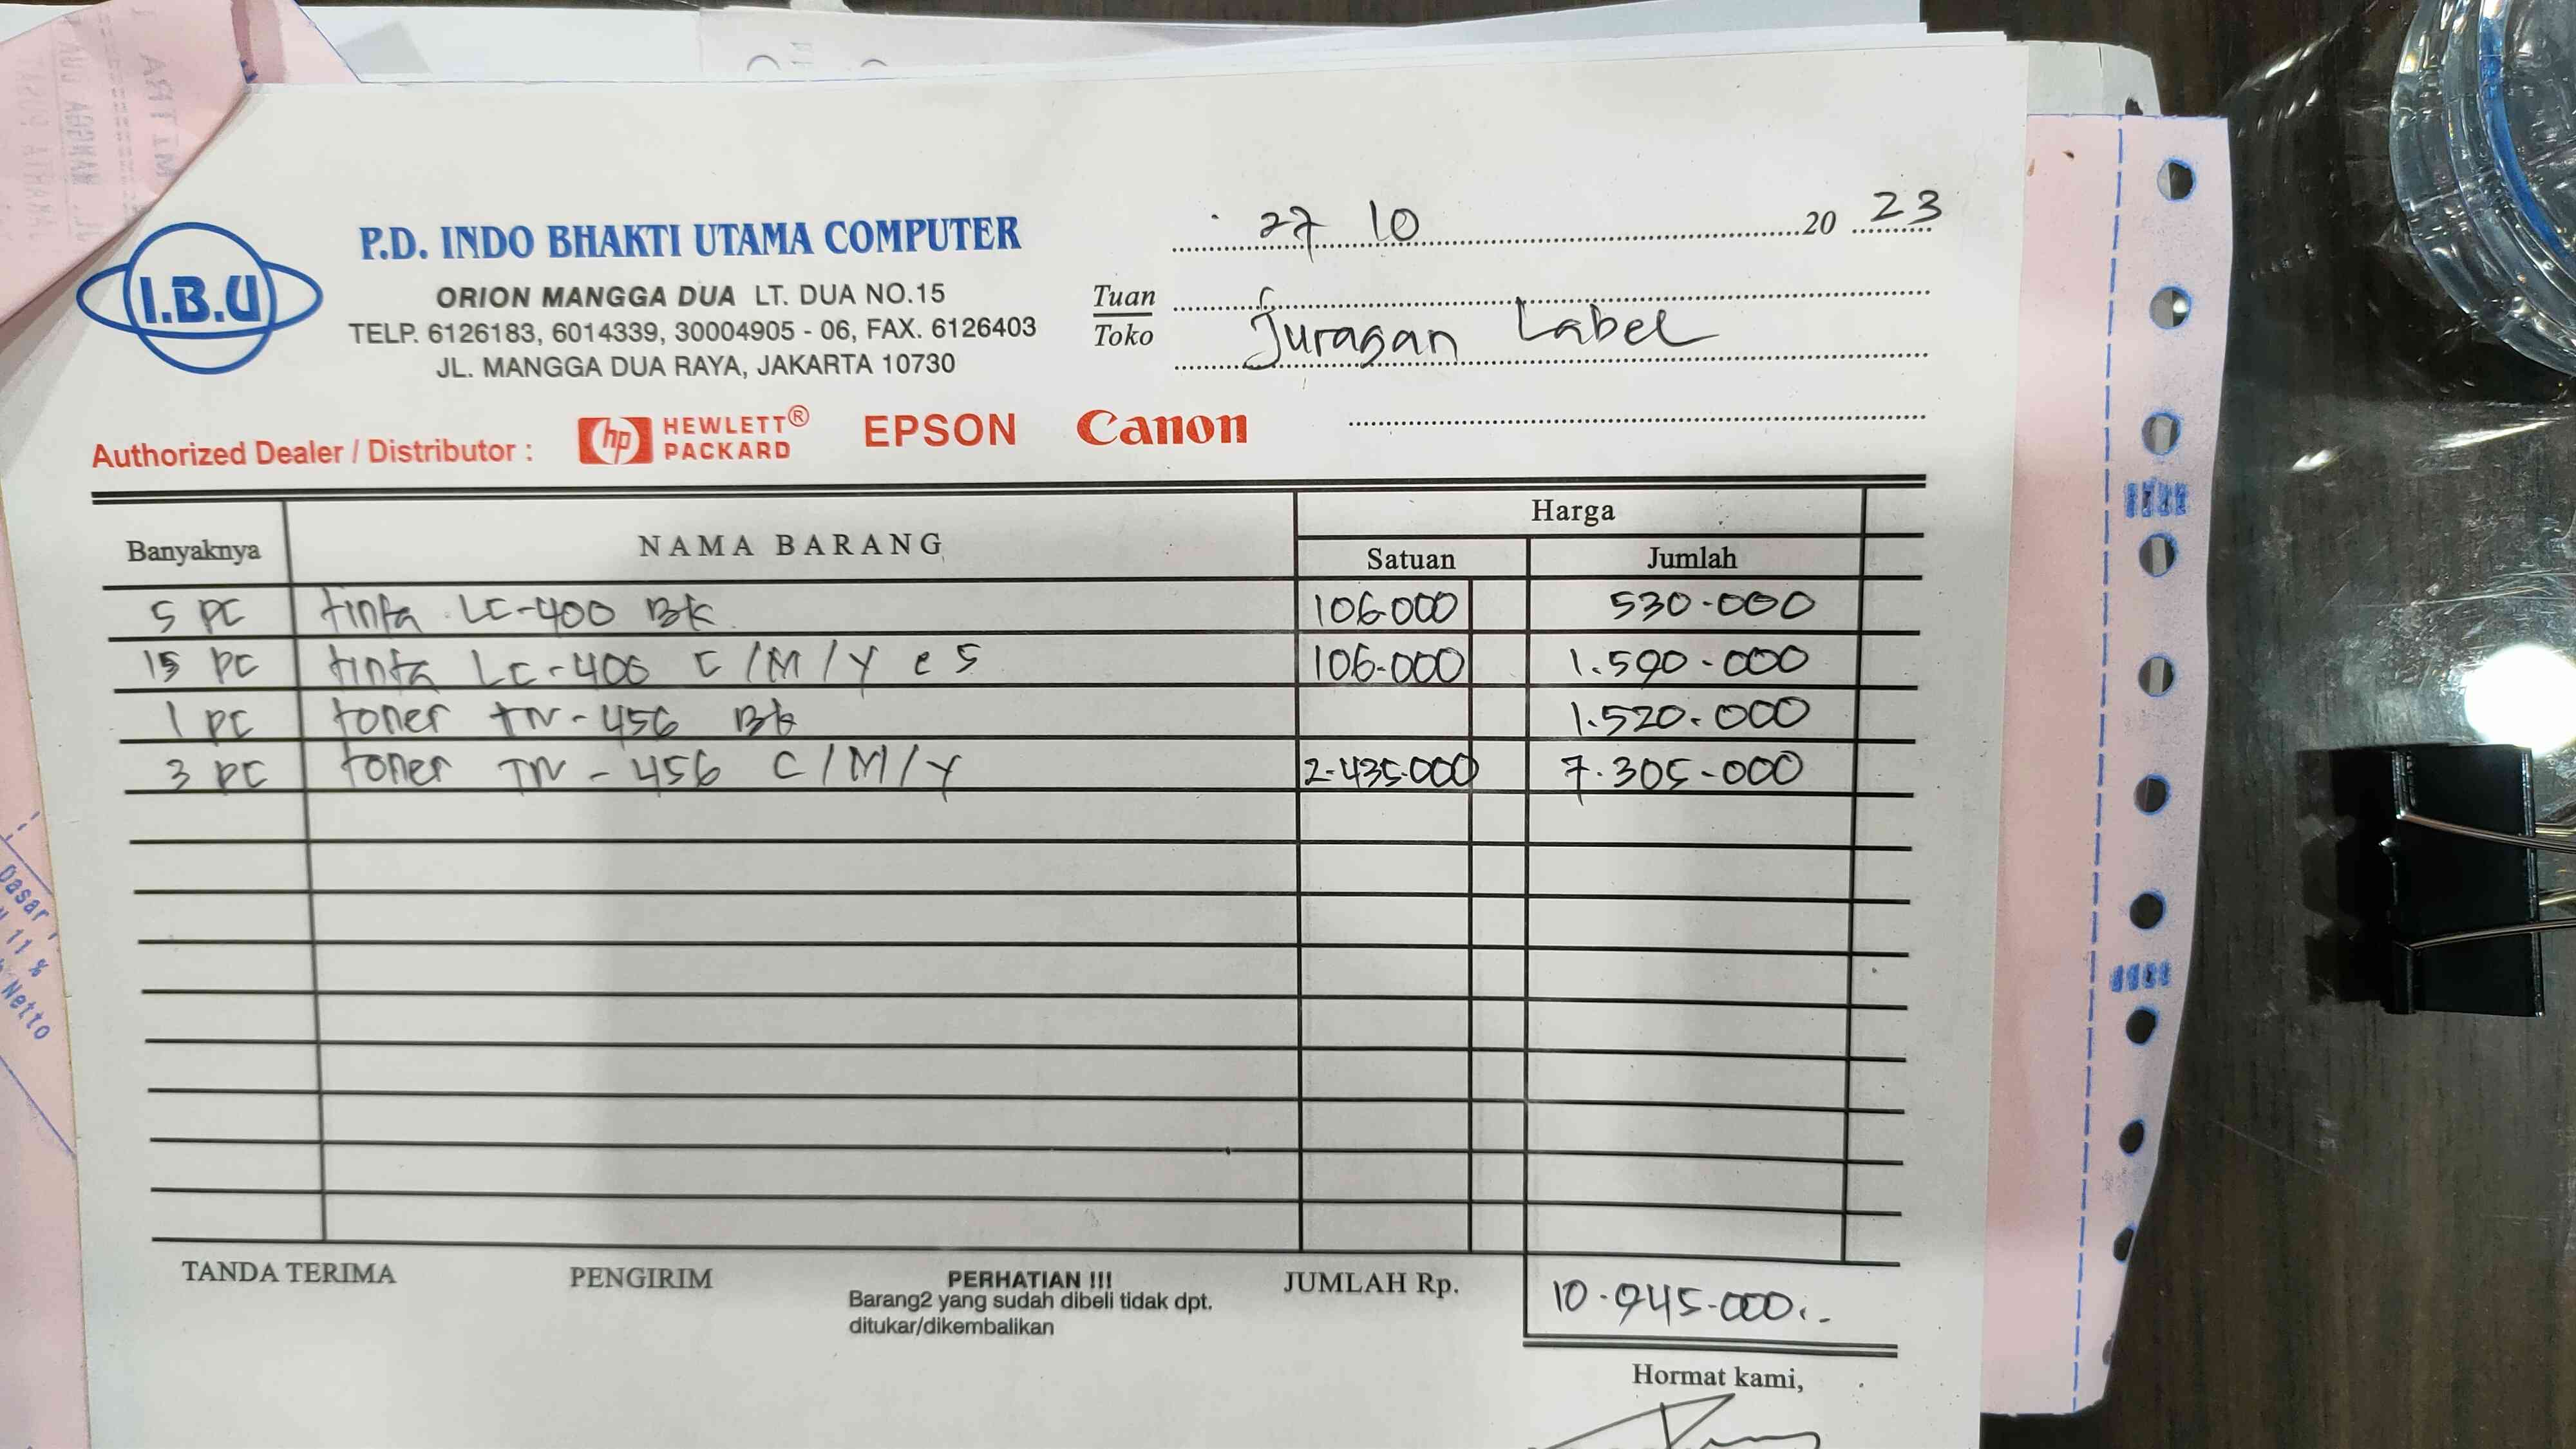 27 10 20 23
P.D. INDO BHAKTI UTAMA COMPUTER
I.B.U
ORION MANGGA DUA LT. DUA NO.15
TELP. 6126183, 6014339, 30004905 - 06, FAX. 6126403
JL. MANGGA DUA RAYA, JAKARTA 10730
Tuan
Toko
Juragan Label
Authorized Dealer / Distributor : hp HEWLETT® PACKARD EPSON Canon
Banyaknya NAMA BARANG Harga
Satuan Jumlah
5 PC tinta LC-400 Bk 106.000 530.000
15 PC tinta LC-400 C/M/Y e 5 106.000 1.590.000
1 PC toner TN-456 Bk 1.520.000
3 PC toner TN-456 C/M/Y 2.435.000 7.305.000
TANDA TERIMA PENGIRIM PERHATIAN !!! JUMLAH Rp. 10.945.000.-
Barang2 yang sudah dibeli tidak dpt.
ditukar/dikembalikan
Hormat kami,
Dasar
11 %
Netto